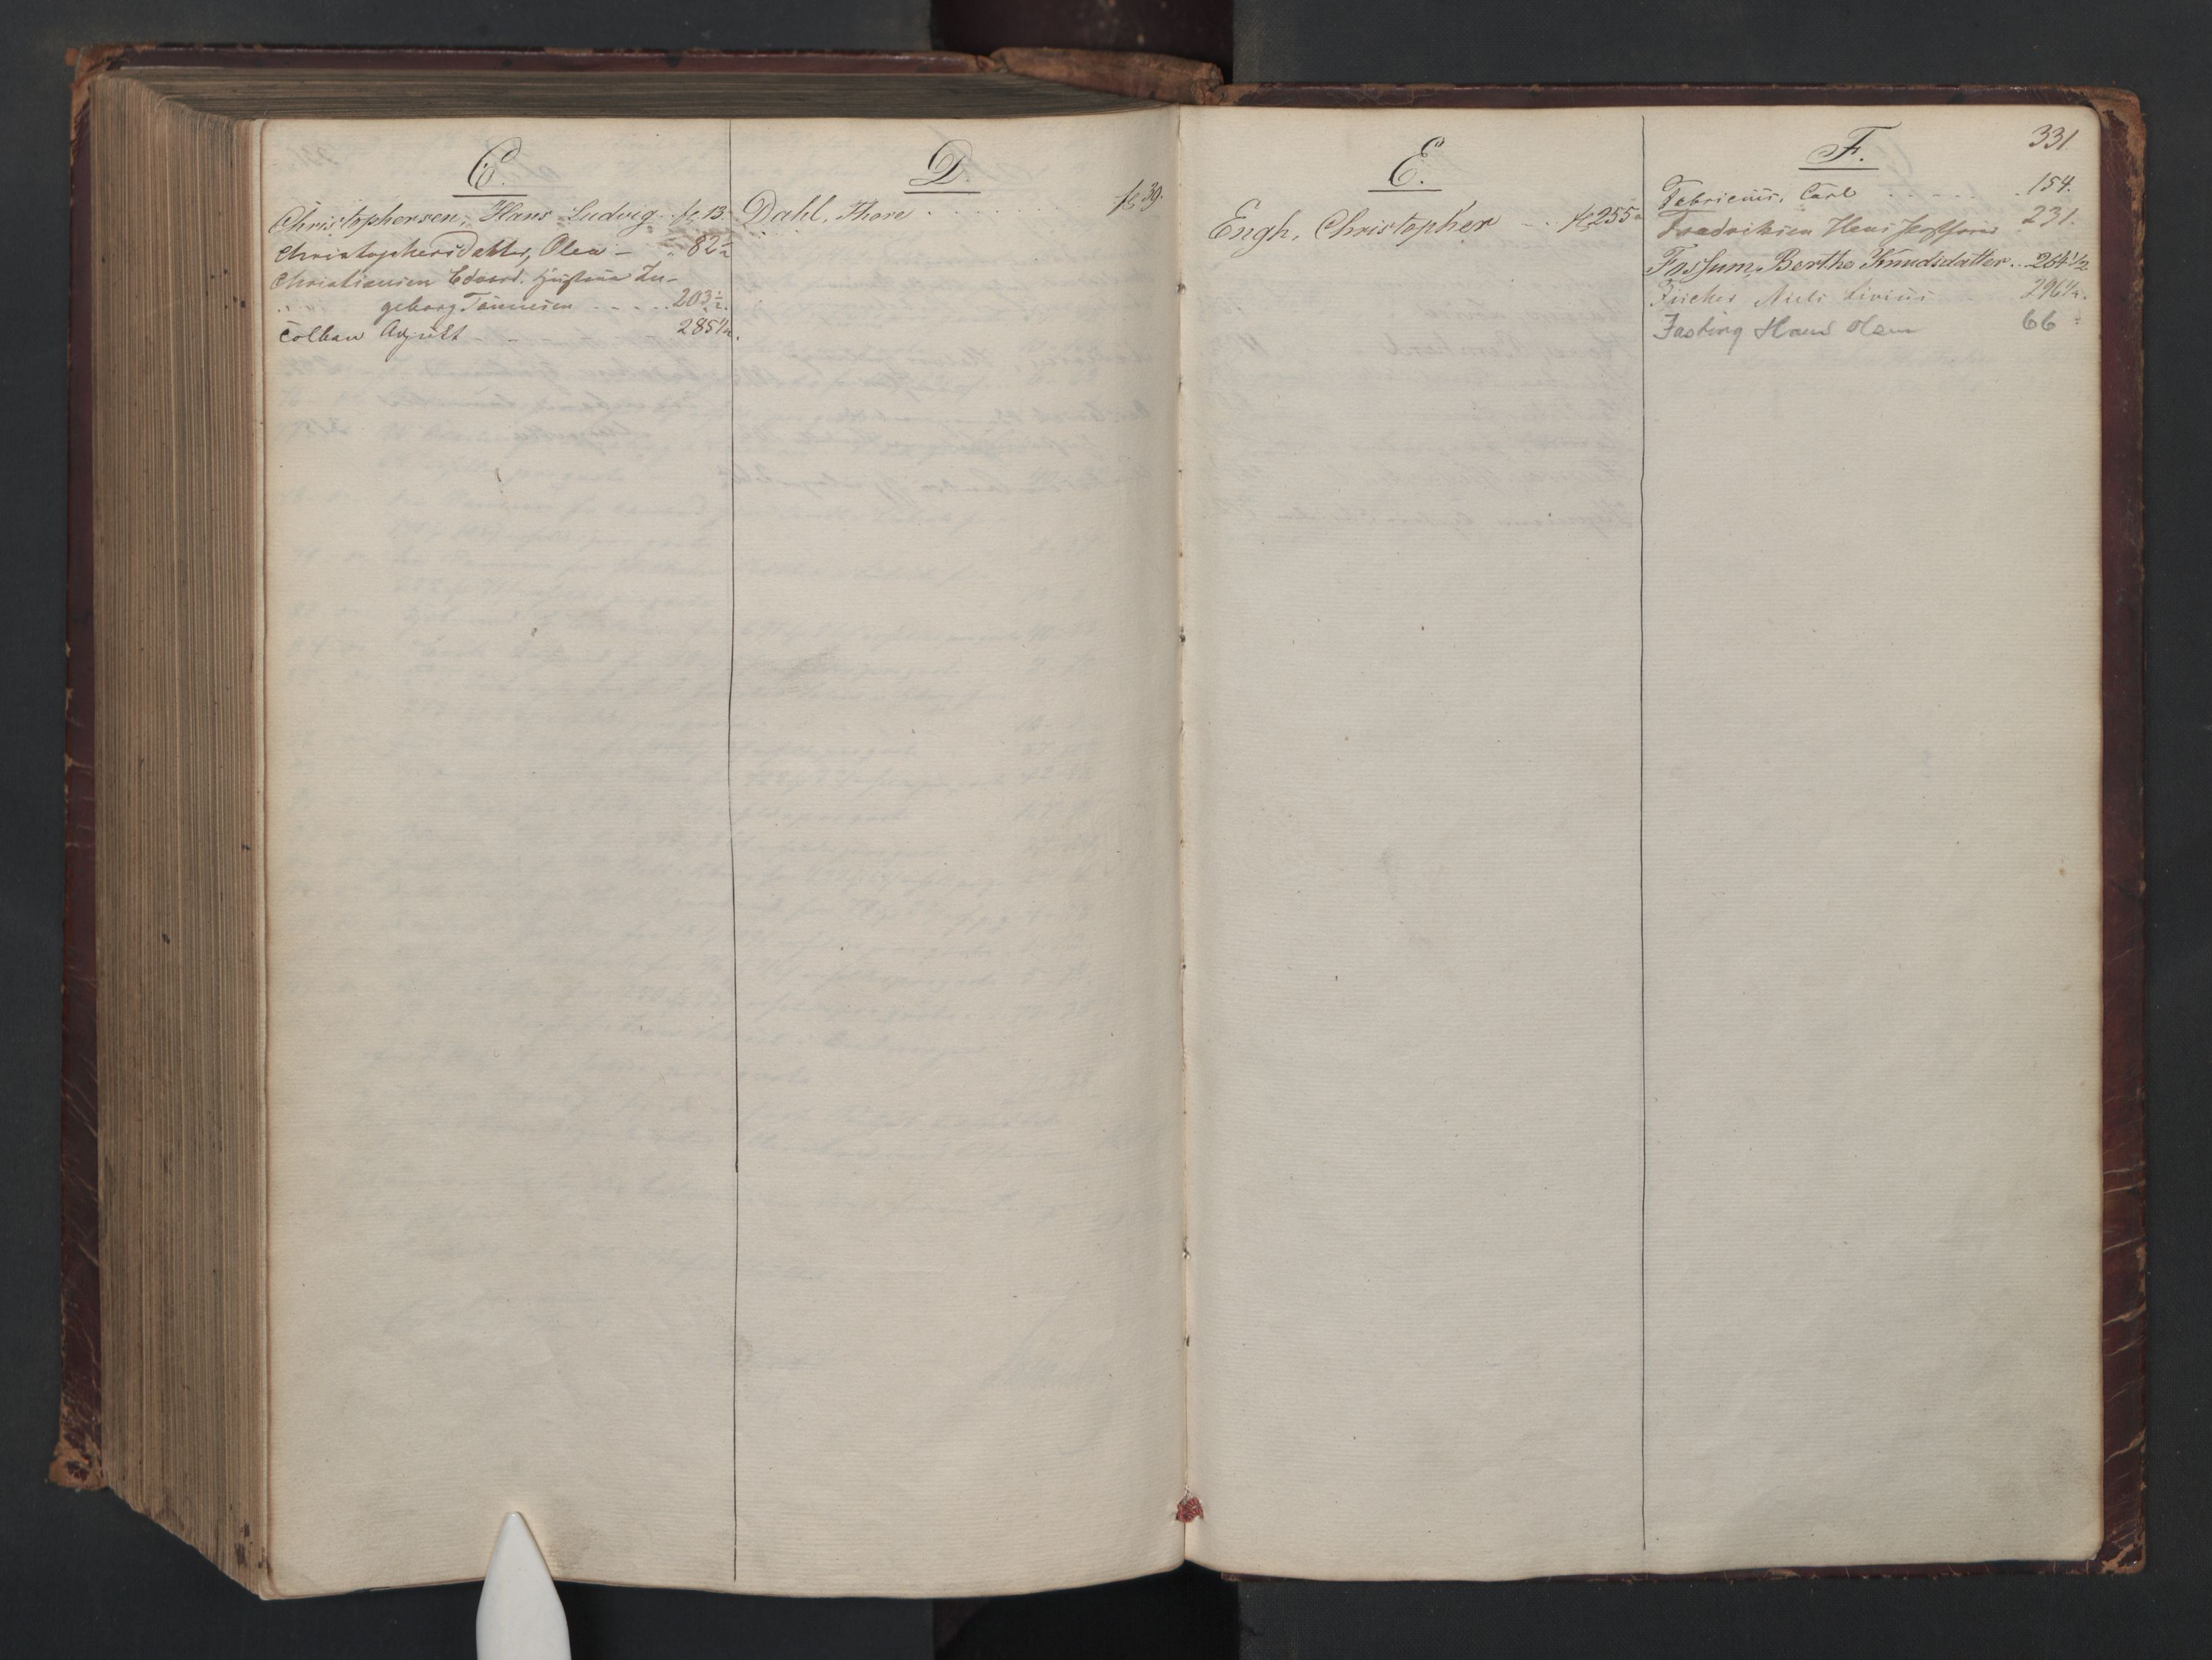 C.
Christophersen, Hans Ludvig. fo 13.
Christophersdatter, Olea - " 82 1/2
Christiansen Edvard. Hustrue In-
geborg Tønnesen - - - - 203 1/2.
Colban Adjunkt - - 285 1/2.
D.
Dahl, Thore . . . . . . fo 39.
E.
Engh, Christopher - . . fo 255
331
F.
Fabricius, Carl . . - - - . 154.
Fredriksen Hans 231.
Fossum, Berthe Knudsdatter . . 264 1/2
Fischer Niels Livius 296 1/2.
Fasting Hans Olsen 66